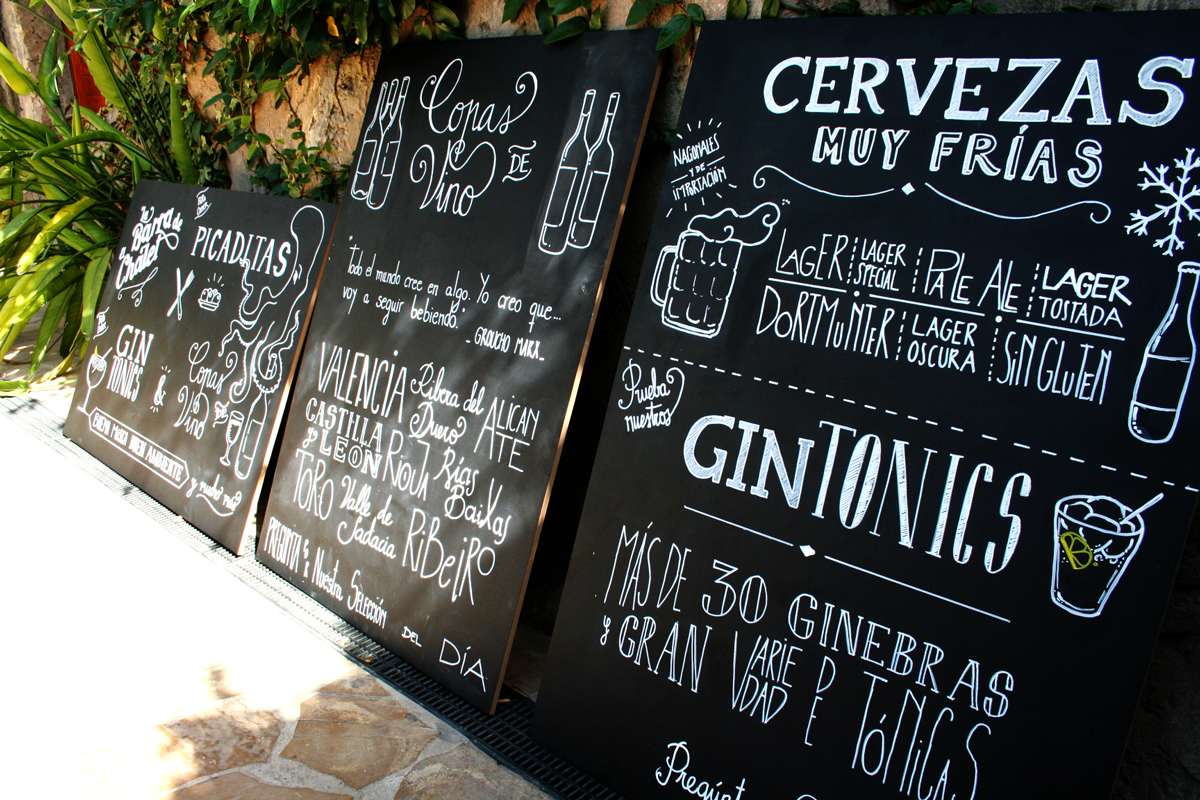 la
Barra de
Chalet
PICADITAS
GIN
TONICS
&
Copas
de
Vino
BUENA MÚSICA BUEN AMBIENTE
y mucho más
Copas
DE
Vino
"Todo el mundo cree en algo. Yo creo que...
voy a seguir bebiendo."
_ GROUCHO MARX_
VALENCIA
Ribera del
Duero
ALICAN
TE
CASTILLA
y LEÓN
RIOJA
Rías
Baixas
TORO
Valle de
Sadacia
RiBeiRO
PREGUNTA x Nuestra SELECCIÓN
DEL DÍA
CERVEZAS
MUY FRÍAS
NACIONALES
Y DE
IMPORTACIÓN
LAGER
LAGER
SPECIAL
PALE ALE
LAGER
TOSTADA
DORTMUNTER
LAGER
OSCURA
SiN GLUTEN
Prueba
nuestros
GINTONICS
MÁS DE 30 GINEBRAS
y GRAN VARIE
DAD DE TÓNiCAS
Pregunt